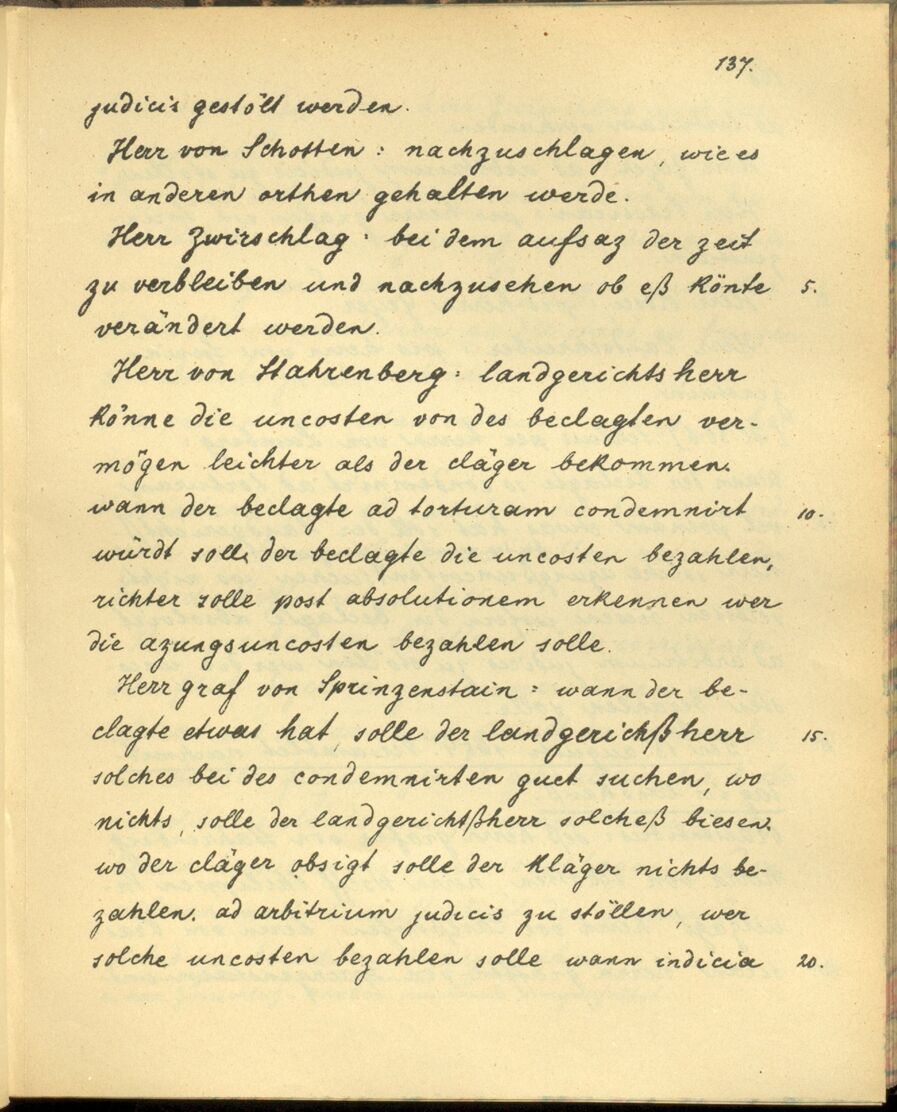 137.
judicis gestölt werden.
Herr von Schotten: nachzuschlagen, wie es
in anderen orthen gehalten werde.
Herr Zwirschlag: bei dem aufsaz der zeit
zu verbleiben und nachzusehen ob eß könte 5.
verändert werden.
Herr von Stahrenberg: landgerichtsherr
könne die uncosten von des beclagten ver-
mögen leichter als der cläger bekommen.
wann der beclagte ad torturam condemnirt 10.
würdt solle der beclagte die uncosten bezahlen,
richter solle post absolutionem erkennen wer
die azungsuncosten bezahlen solle.
Herr graf von Sprinzenstain: wann der be-
clagte etwas hat, solle der landgerichßherr 15.
solches bei des condemnirten guet suchen, wo
nichts, solle der landgerichtßherr solcheß biesen.
wo der cläger obsigt solle der Kläger nichts be-
zahlen. ad arbitrium judicis zu stöllen, wer
solche uncosten bezahlen solle wann indicia 20.